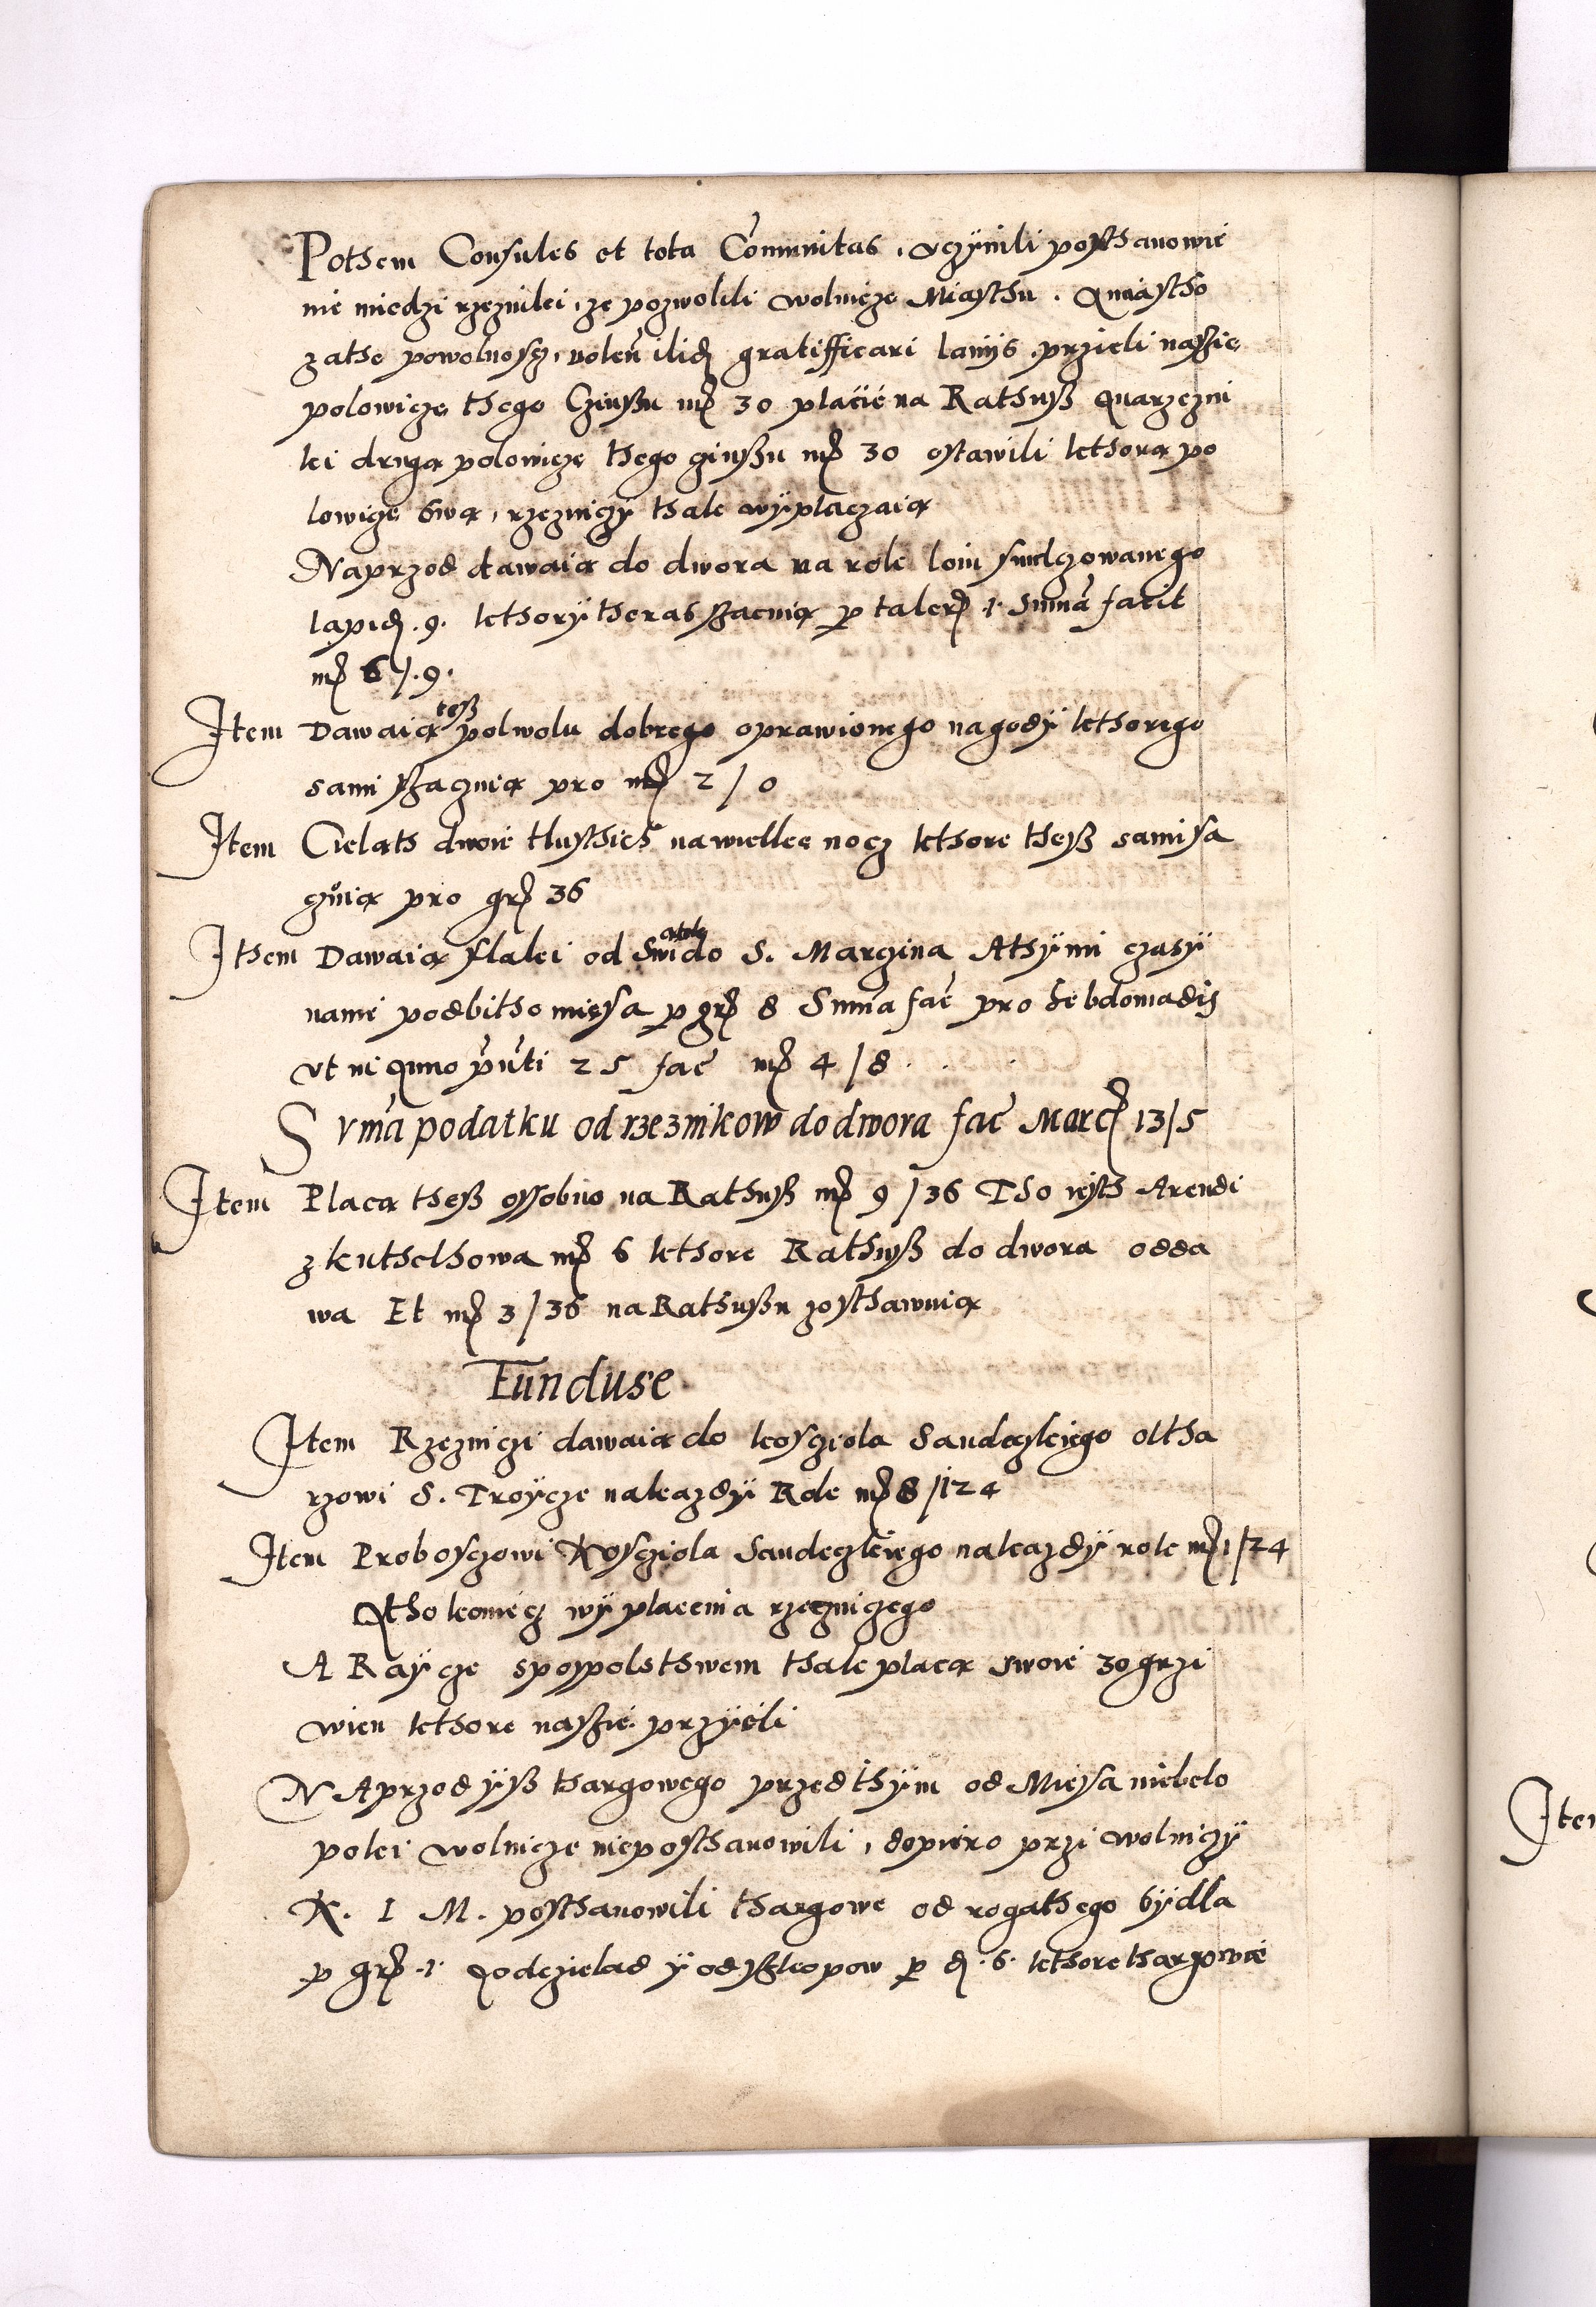 Pothem Consules et tota Cõmunitas, vczÿnili posthanowie
nie miedzi rzeznikj, ze pozwolili wolnicze Miasthu. A miastho
zatho powolnoscz, volen̄ illis gratifficari lanijs przieli nassie
polowicze thego Czinßu mr̃ 30 placić na Rathuß A narzezni
kj druga polowicze thego czinßu mr̃ 30 ostawili kthora po
lowicze swa, rzezniczÿ thak wÿplaczaia
Naprzod dawaia do dwora na rok loiu smelczowanego
lapid. 9. kthorÿ theras ssacuia p taler. 1. Sum̃a facit
mr̃ 6/.9.
Item Dawaia teß polwolu dobrego oprawionego nagodÿ kthorego
sami ssaczuia pro mr̃ 2/0
Item Cielath dwoie tlusthich nawielka nocz kthore theß sami sa
czuia pro gr̃ 36
Ithem Dawaia flaki od S. Marczina Athÿmi czasÿ
namie podbitho miesa p gr̃ 8 Sum̃a fac̃ pro hebdomadis
vt in Anno pñti 25 fac̃ mr̃ 4/8.
Svm̃a podatku od rzeznikow do dwora fac̃ Marc̃ 13/5
Item Placa theß ossobno na Rathuß mr̃ 9/36 Tho iesth Arendi
z kuthelhowa mr̃ 6 kthore Rathuß do dwora odda
wa Et mr̃ 3/36 na Rathußu zosthawuia
Funduse
Item Rzeźniczi dawaia do kosciola Sandeczkiego oltha
rzowi S. Troÿcze nakazdÿ Rok mr̃ 8/24
Item Proboszczowi Kosciola Sandeczkiego nakazdÿ rok mr̃ 1/24
A tho koniecz wÿplacenia rzezniczego
A Raÿcze spospolsthwem thak placa swoie 30 grzi
wien kthore nassie przÿieli
NAprzod ÿß thargowego przed thÿm od Miesa niebelo
poki wolnicze nieposthanowili, dopiero przi wolniczÿ
K. I M. posthanowili thargowe od rogathego bÿdla
p gr̃. 1. A od cielad ÿ od sskopow p d. 6. kthore thargowe